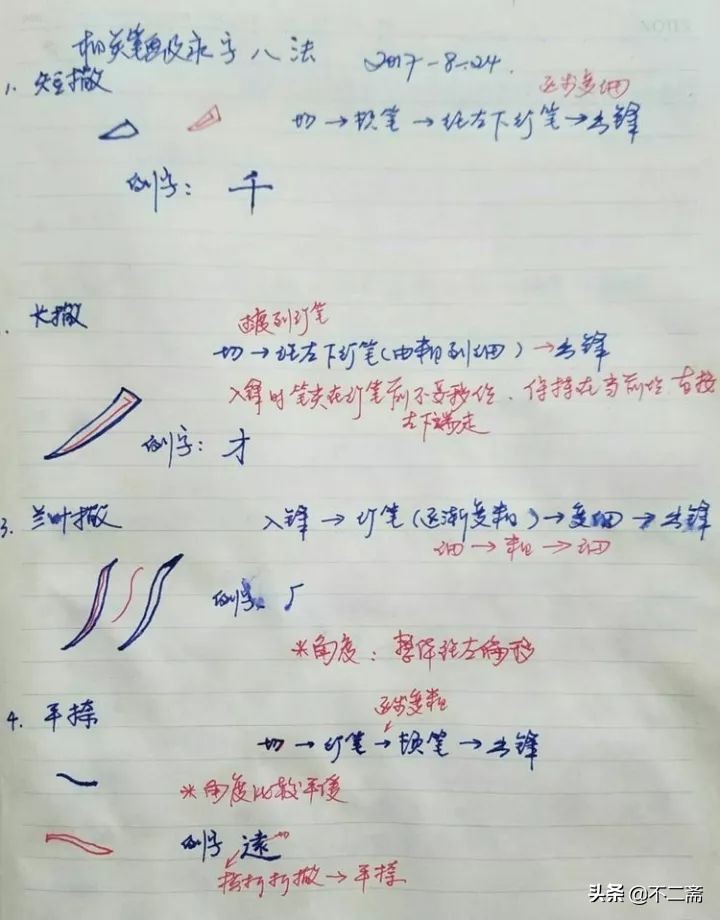 相关笔画及永字八法 2017-8-24.
1. 短撇
逐步变细
切→顿笔→往左下行笔→出锋
例字: 千
长撇
过度到行笔
切→往左下行笔(由粗到细)→出锋
入锋时笔尖在行笔前不要移位、保持在当前位直接
左下端走
例字: 才
3. 兰叶撇
入锋→行笔(逐渐变粗)→变细→出锋
细→粗→细
例字:
※角度: 整体往左偏移
4. 平捺
逐步变粗
切→行笔→顿笔→出锋
※角度比较平缓
例字 遠 切
横折折撇→平捺
头条 @不二斋